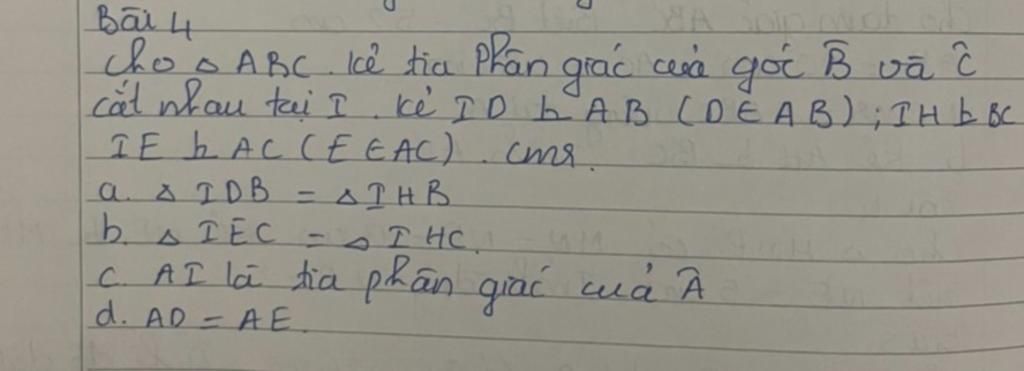 Bài 4
Cho △ ABC. kẻ tia phân giác của góc B̂ và Ĉ
cắt nhau tại I. kẻ ID ⊥ AB (D ∈ AB); IH ⊥ BC
IE ⊥ AC (E ∈ AC). cmr.
a. △ IDB = △ IHB
b. △ IEC = △ IHC.
c. AI là tia phân giác của Â
d. AD = AE.